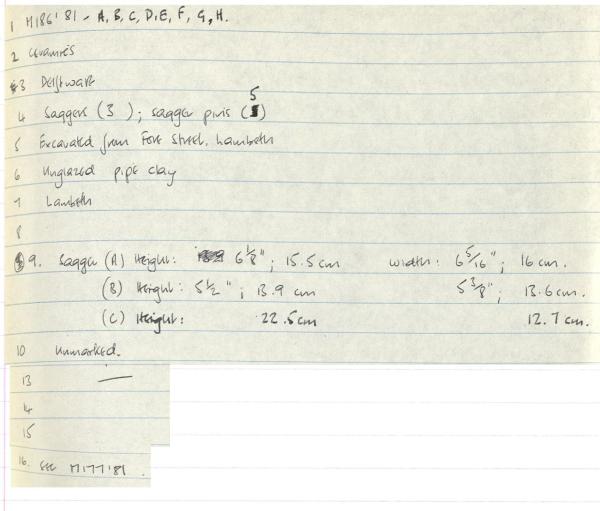 1 M186'81 - A, B, C, D, E, F, G, H.
2 Ceramics
3 Delftware
5
4 Saggers (3); sagger pins ( )
5 Excavated from Fore Street, Lambeth
6 Unglazed pipe clay
7 Lambeth
8
9. Sagger (A) Height: 6 1/8"; 15.5 cm width: 6 5/16"; 16 cm.
(B) Height: 5 1/2"; 13.9 cm 5 3/8"; 13.6 cm.
(C) Height: 22.5 cm 12.7 cm.
10 Unmarked.
13 —
14
15
16. See M177'81.